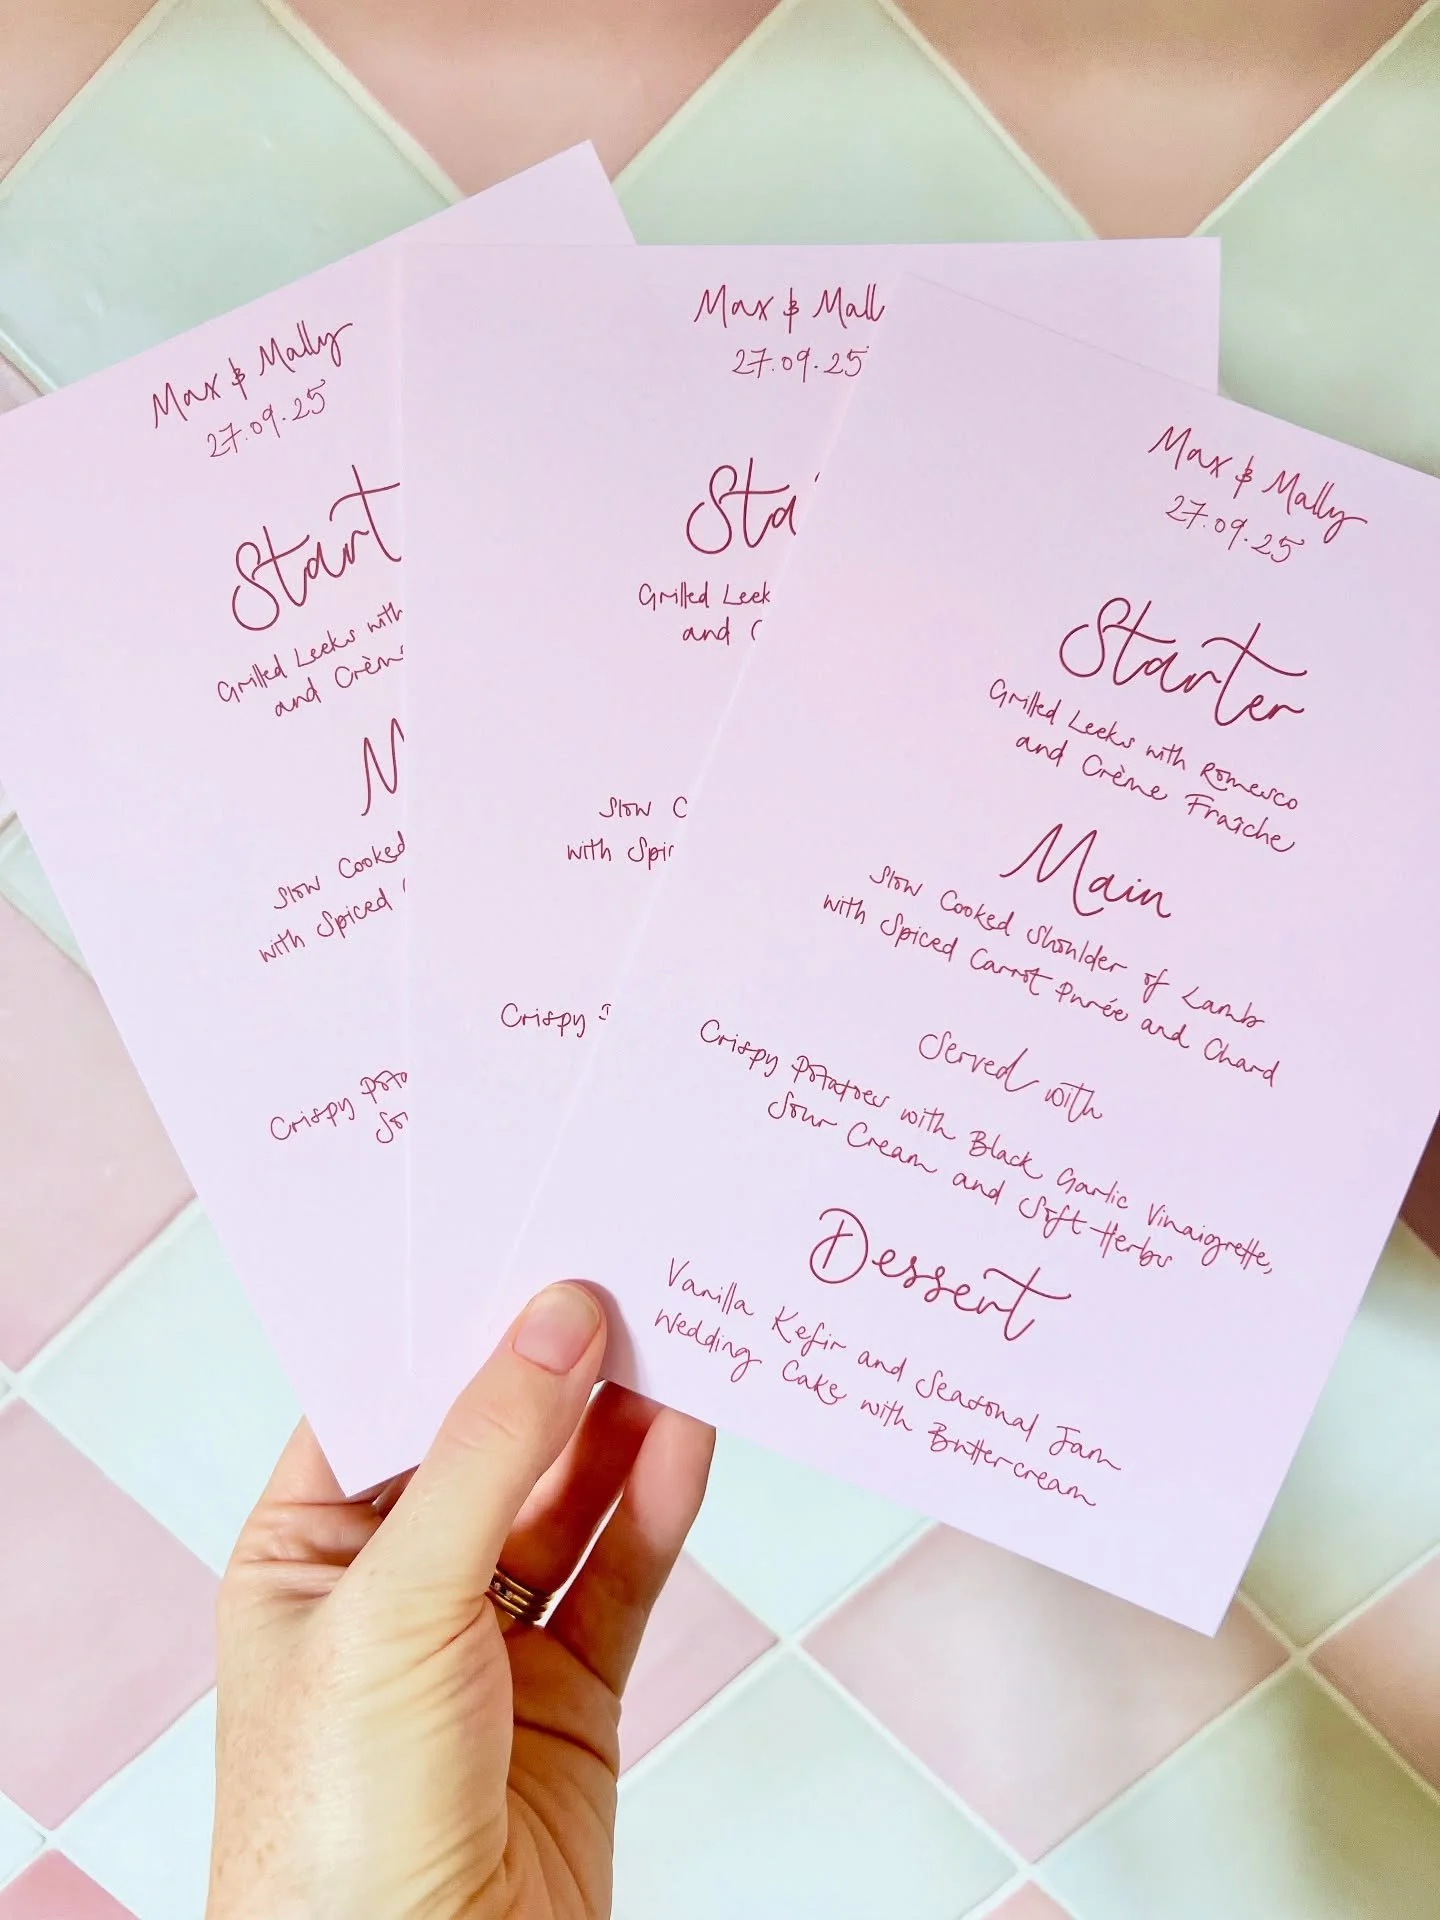 Max & Mally
27.09.25
Start
Grilled Leeks with
and Crèm
M
Slow Cooked
with Spiced
Crispy Pota
Sou
Max & Mall
27.09.25
Sta
Grilled Leek
and C
Slow C
with Spic
Crispy
Max & Mally
27.09.25
Starter
Grilled Leeks with Romesco
and Crème Fraîche
Main
Slow Cooked Shoulder of Lamb
with Spiced Carrot Purée and Chard
Served with
Crispy Potatoes with Black Garlic Vinaigrette,
Sour Cream and Soft Herbs
Dessert
Vanilla Kefir and Seasonal Jam
Wedding Cake with Buttercream